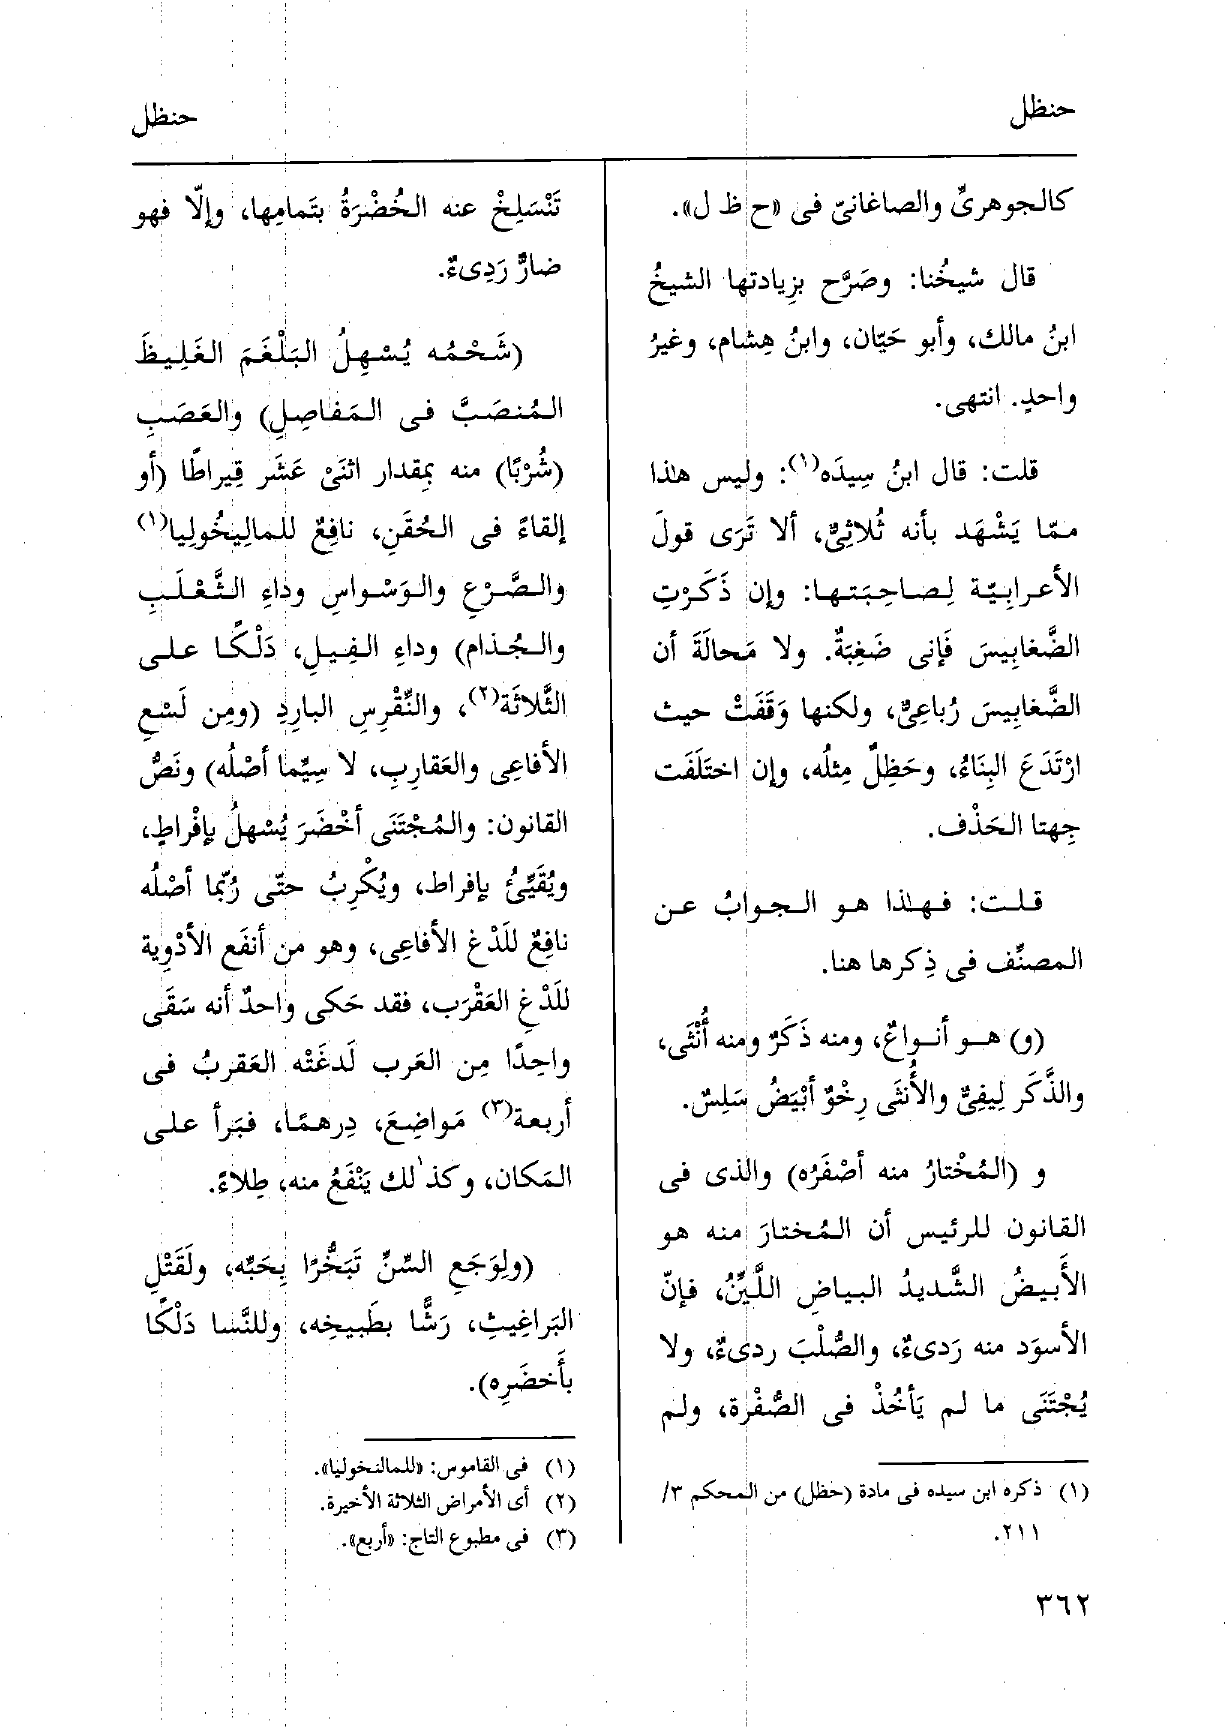 حنظل
حنظل
كالجوهرىِّ والصاغانىّ فى «ح ظ ل».
قال شيخُنا: وصَرَّح بزِيادتها الشيخُ
ابنُ مالك، وأبو حَيّان، وابنُ هِشام، وغيرُ
واحدٍ. انتهى.
قلت: قال ابنُ سِيدَه(١): وليس هٰذا
ممّا يَشْهَد بأنه ثُلاثِىٌّ، ألا تَرَى قولَ
الأعرابِيّة لِصاحِبَتها: وإن ذَكَرْتِ
الضَّغابِيسَ فَإنى ضَغِبَةٌ. ولا مَحالَةَ أن
الضَّغابِيسَ رُباعِىٌّ، ولكنها وَقَفَتْ حيث
ارْتَدَعَ البِنَاءُ، وحَظِلٌ مِثلُه، وإن اختَلَفَت
جِهتا الحَذْف.
قلت: فهٰذا هو الجوابُ عن
المصنِّف فى ذِكرها هنا.
(و) هو أنواعٌ، ومنه ذَكَرٌ ومنه أُنْثَى،
والذَّكَر لِيفِىٌّ والأُنثَى رِخْوٌ أبْيَضُ سَلِسٌ.
و (المُخْتارُ منه أصْفَرُه) والذى فى
القانون للرئيس أن المُختارَ منه هو
الأَبيضُ الشَّديدُ البياضِ اللَّيِّنُ، فإنّ
الأسوَد منه رَدىءٌ، والصُّلْبَ ردىءٌ، ولا
يُجْتَنَى ما لم يَأخُذْ فى الصُّفْرة، ولم
(١) ذكره ابن سيده فى مادة (حظل) من المحكم ٣/
٢١١.
تَنْسَلِخْ عنه الخُضْرَةُ بتَمامِها، وإلّا فهو
ضارٌّ رَدِىءٌ.
(شَحْمُه يُسْهِلُ البَلْغَمَ الغَلِيظَ
المُنصَبَّ فى المَفاصِلِ) والعَصَبِ
(شُرْبًا) منه بمِقدار اثنَىْ عَشَر قِيراطًا (أو
إلقاءً فى الحُقَنِ، نافِعٌ للمالِيخُولِيا(١)
والصَّرْعِ والوَسْواسِ وداءِ الثَّعْلَبِ
والجُذام) وداءِ الفِيلِ، دَلْكًا على
الثَّلاثَة(٢)، والنِّقْرِسِ البارِدِ (ومِن لَسْعِ
الأفاعِى والعَقارِبِ، لا سِيَّما أصْلُه) ونَصُّ
القانون: والمُجْتَنَى أخْضَرَ يُسْهلُ بإفْراطٍ،
ويُقَيِّئُ بإفراط، ويُكْرِبُ حتّى رُبّما أصْلُه
نافِعٌ للَدْغ الأفاعِى، وهو من أنفَع الأدْوِية
للَدْغِ العَقْرَب، فقد حَكى واحدٌ أنه سَقَى
واحِدًا مِن العَرب لَدغَتْه العَقربُ فى
أربعة(٣) مَواضِعَ، دِرهمًا، فبَرأ على
المَكان، وكذٰلك يَنْفَعُ منه، طِلاءً.
(ولِوَجَعِ السِّنِّ تَبَخُّرًا بِحَبِّه، ولَقَتْلِ
البَراغِيثِ، رَشًّا بطَبيخِه، وللنَّسا دَلْكًا
بأَخضَرِه).
(١) فى القاموس: «للمالنخوليا».
(٢) أى الأمراض الثلاثة الأخيرة.
(٣) فى مطبوع التاج: «أربع».
٣٦٢